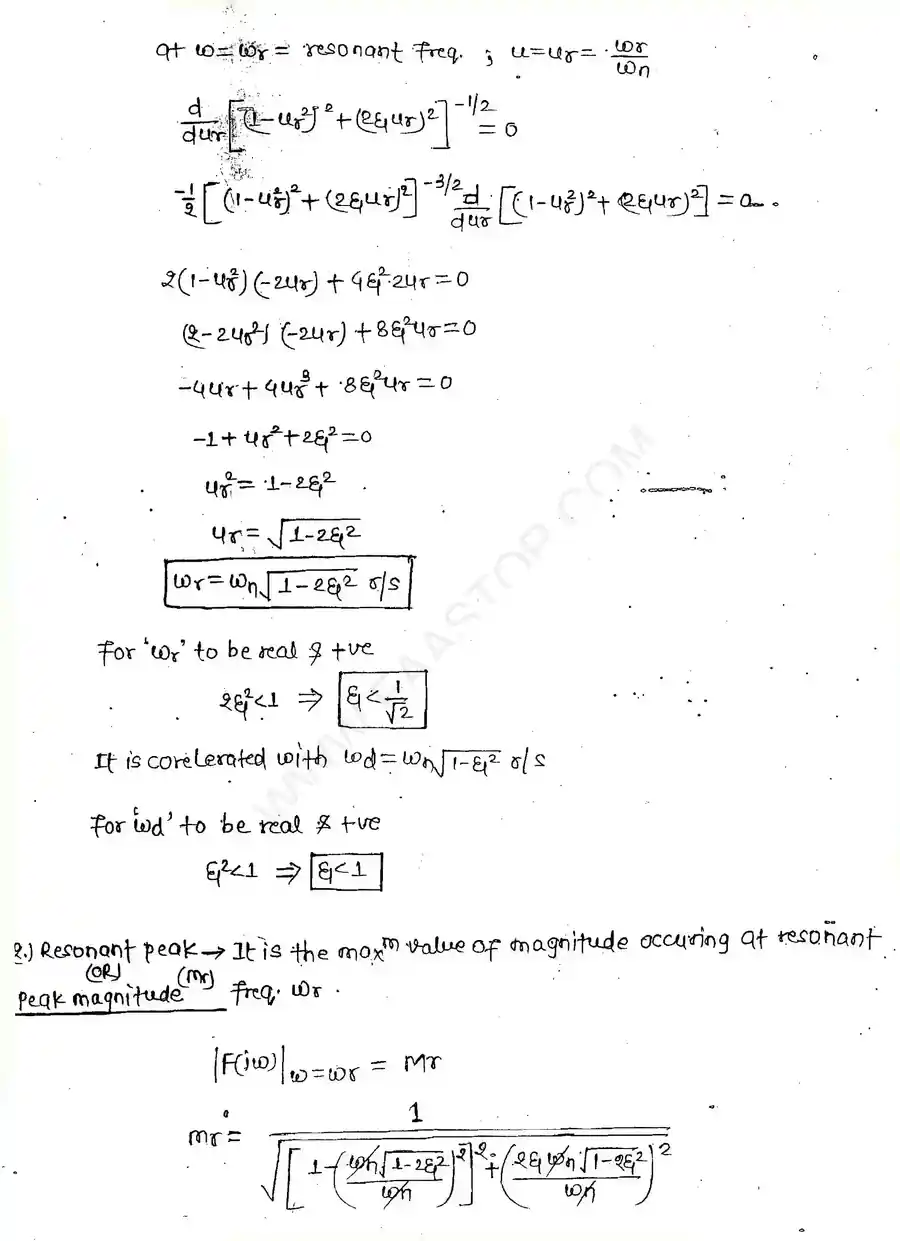 at ω = ωr = resonant freq. ; u = ur = ωr/ωn
d/dur [(1-ur²)² + (2ξur)²]^-1/2 = 0
-1/2 [(1-ur²)² + (2ξur)²]^-3/2 d/dur [(1-ur²)² + (2ξur)²] = 0
2(1-ur²)(-2ur) + 4ξ²·2ur = 0
(2-2ur²)(-2ur) + 8ξ²ur = 0
-4ur + 4ur³ + 8ξ²ur = 0
-1 + ur² + 2ξ² = 0
ur² = 1-2ξ²
ur = √(1-2ξ²)
ωr = ωn√(1-2ξ²) r/s
For 'ωr' to be real & +ve
2ξ² < 1 ⇒ ξ < 1/√2
It is corelerated with ωd = ωn√(1-ξ²) r/s
For 'ωd' to be real & +ve
ξ² < 1 ⇒ ξ < 1
2.) Resonant peak → It is the maxᵐ value of magnitude occuring at resonant
(OR) (Mr)
Peak magnitude freq. ωr.
|F(jω)|ω=ωr = Mr
Mr = 1/√([1-(ωn√(1-2ξ²)/ωn)²]² + (2ξωn√(1-2ξ²)/ωn)²)